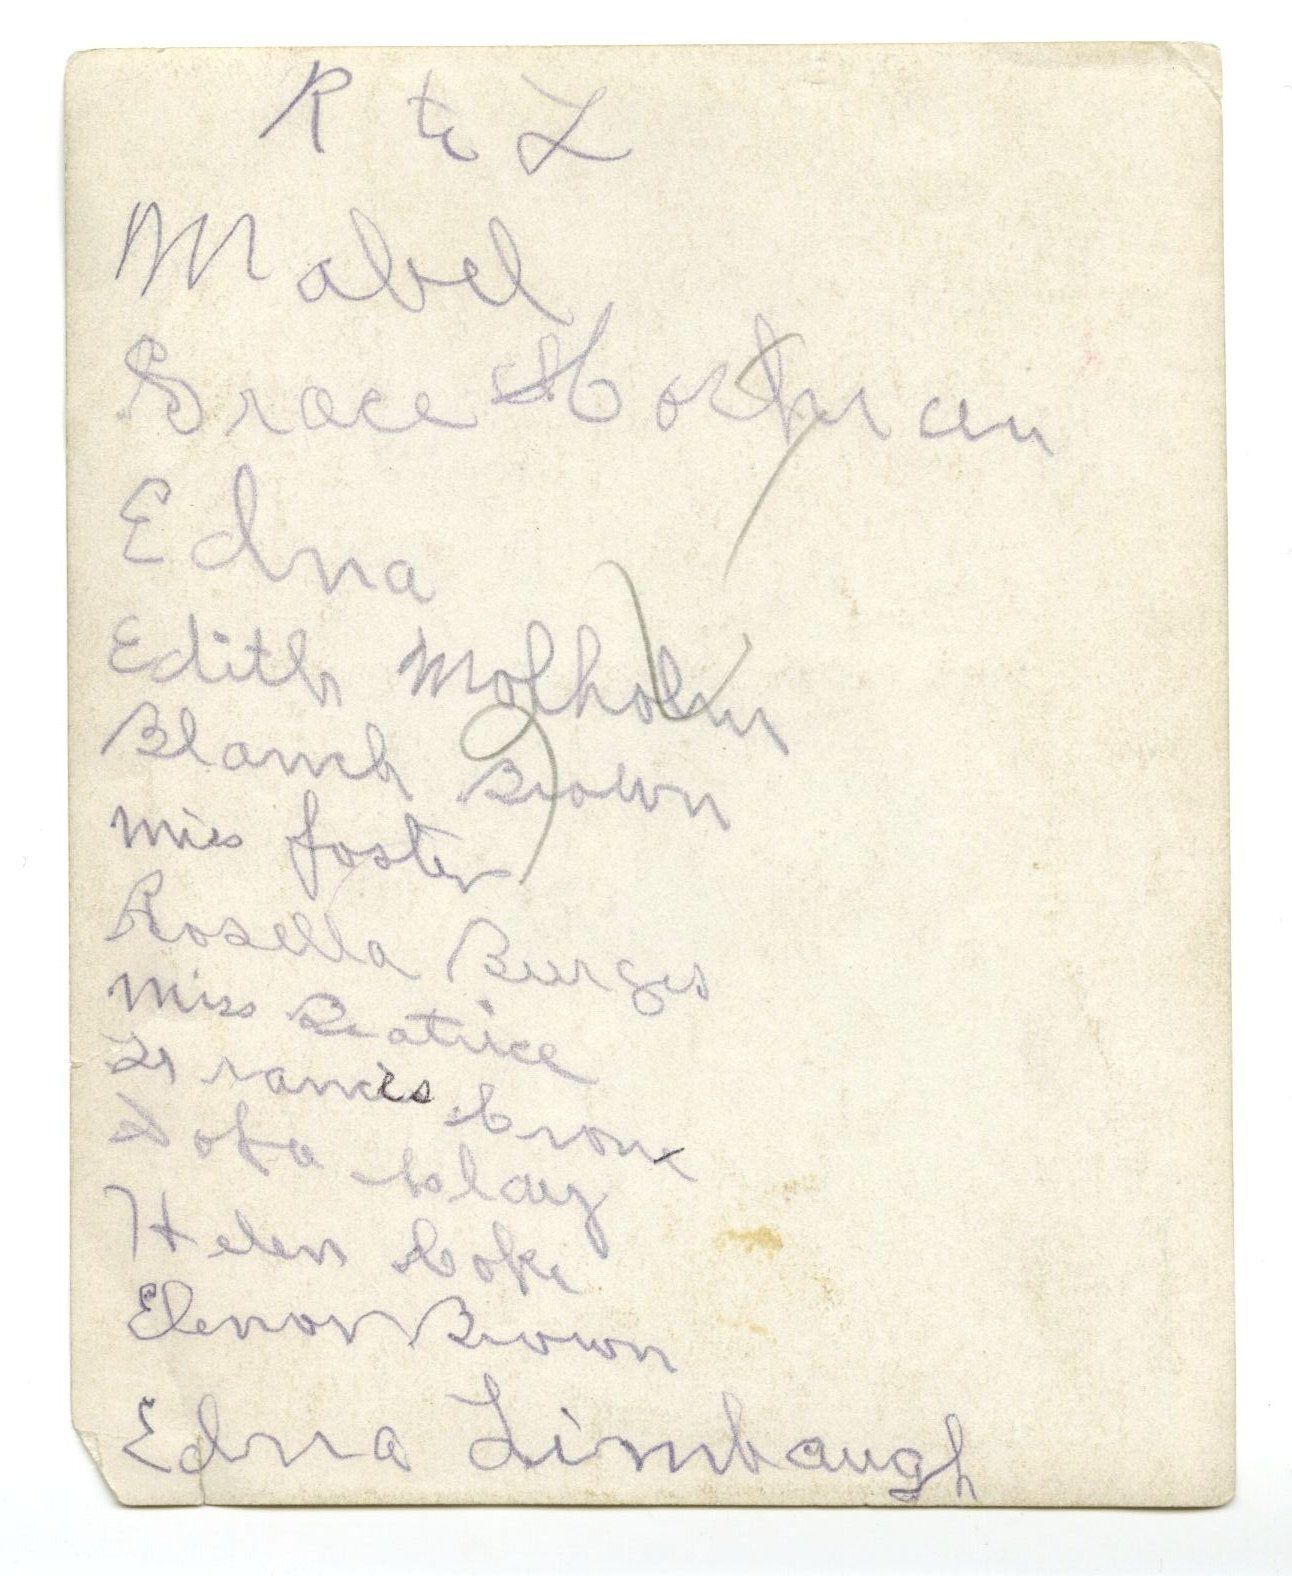 R to L
Mabel
Grace Hockman
Edna
Edith Molholm
Blanch Brown
Miss foster
Rosella Burges
Miss Beatrice
Francis Crone
Helen Coke
Elenor Brown
Edna Limbaugh